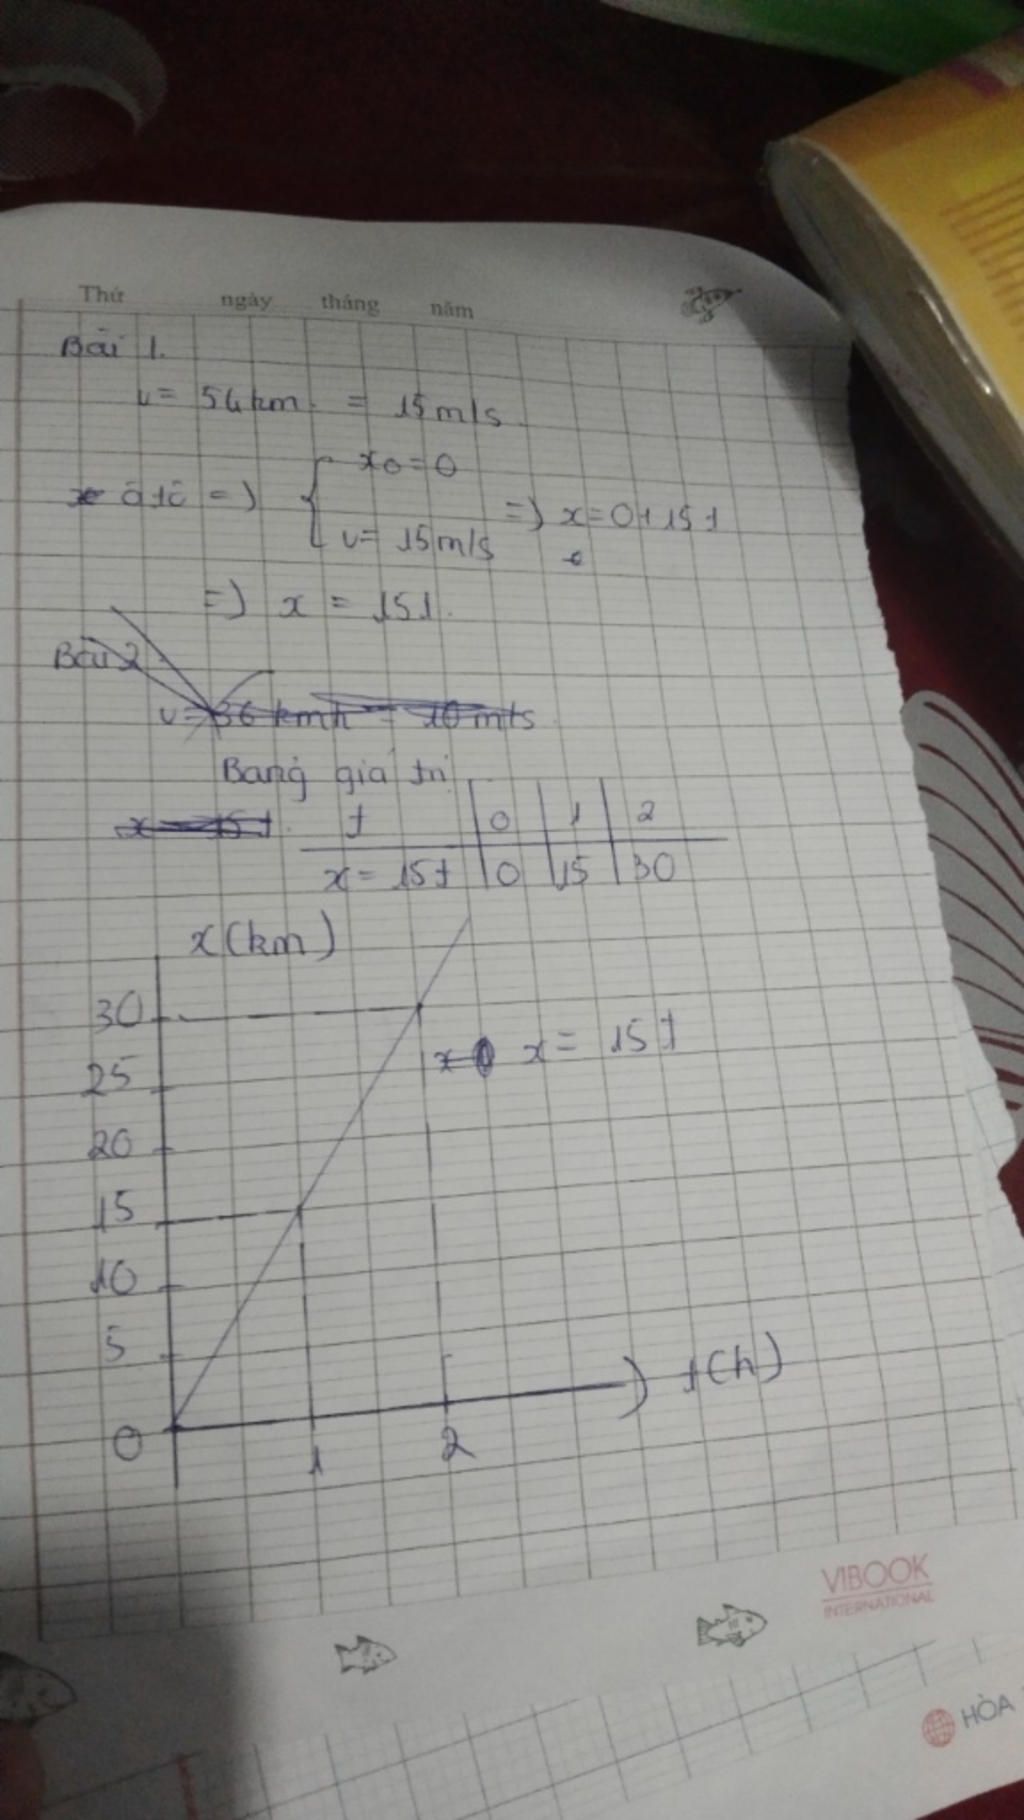 Thứ ngày tháng năm
Bài 1.
v = 54 km = 15 m/s
ô tô => { x0 = 0
v = 15 m/s => x = 0 + 15t
=> x = 15t.
Bài 2
v = 36 kmh = 10 m/s
Bảng giá trị
x = 15t t 0 1 2
x = 15t 0 15 30
x(km)
30
x = 15t
25
20
15
10
5
t(h)
0 1 2
VIBOOK
INTERNATIONAL
HÒA